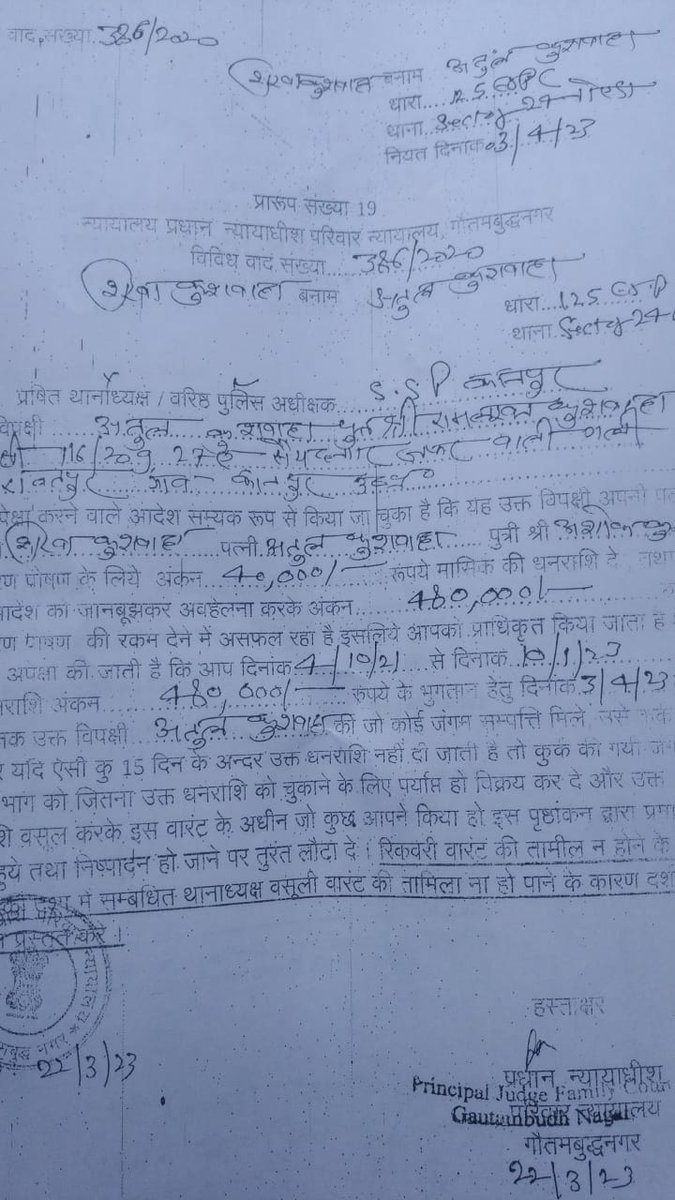 वाद संख्या 386/2020
बनाम अतुल कुशवाहा
धारा.... 125 CRPC
थाना.. Sector 24 नोएडा
नियत दिनांक 03/4/23
प्रारूप संख्या 19
न्यायालय प्रधान न्यायाधीश परिवार न्यायालय, गौतमबुद्धनगर
विविध वाद संख्या.... 386/2020
कुशवाहा बनाम अतुल कुशवाहा
धारा... 125
थाना
प्रेषित थानाध्यक्ष / वरिष्ठ पुलिस अधीक्षक.... S.S.P कानपुर
विपक्षी .... अतुल कुशवाहा पुत्र श्री कुशवाहा
116/209, वाली गली
रावतपुर गांव - कानपुर
पेक्षा करने वाले आदेश सम्यक रूप से किया जा चुका है कि यह उक्त विपक्षी अपनी
कुशवाहा पत्नी अतुल कुशवाहा पुत्री श्री अशोक
ण पोषण के लिये अंकन... 40,000/- रूपये मासिक की धनराशि दे तथा
आदेश का जानबूझकर अवहेलना करके अंकन.... 480,000/-
ण पोषण की रकम देने में असफल रहा है इसलिये आपको प्राधिकृत किया जाता है
अपेक्षा की जाती है कि आप दिनांक 4/10/21 से दिनांक 10/1/23
राशि अंकन 480,000/- रूपये के भुगतान हेतु दिनांक 3/4/23
तक उक्त विपक्षी .... अतुल कुशवाहा की जो कोई जंगम सम्पत्ति मिले, उसे
यदि ऐसी कु 15 दिन के अन्दर उक्त धनराशि नहीं दी जाती है तो कुर्क की गयी
भाग को जितना उक्त धनराशि को चुकाने के लिए पर्याप्त हो विक्रय कर दे और उक्त
शि वसूल करके इस वारंट के अधीन जो कुछ आपने किया हो इस पृष्ठांकन द्वारा
हुये तथा निष्पादन हो जाने पर तुरंत लौटा दे। रिकवरी वारंट की तामील न होने के
में सम्बंधित थानाध्यक्ष वसूली वारंट की तामिला ना हो पाने के कारण
प्रस्तुत करे।
22/3/23
हस्ताक्षर
प्रधान न्यायाधीश
Principal Judge Family Court
परिवार न्यायालय
Gautambudh Nagar
गौतमबुद्धनगर
22/3/23